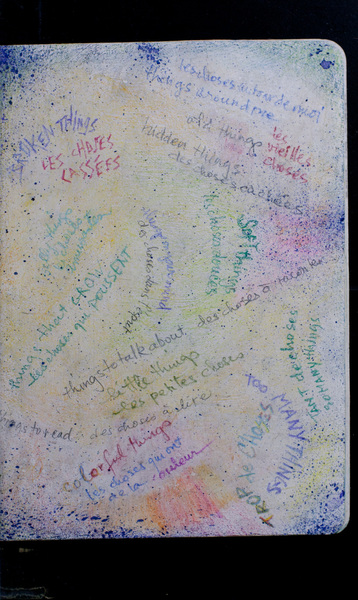 les choses autour de moi
things around me
BROKEN THINGS
LES CHOSES
CASSÉES
old things
les
vieilles
choses
hidden things:
des choses cachées
Soft things
les choses douces
things in my mind
des choses dans
things that GROW
les choses qui POUSSENT
things to talk about, des choses à raconter
little things
les petites choses
SO MANY THINGS
TANT de choses
TOO MANY THINGS
TROP de CHOZES
things to read: des choses à lire
colorful things
les choses qui ont
de la couleur